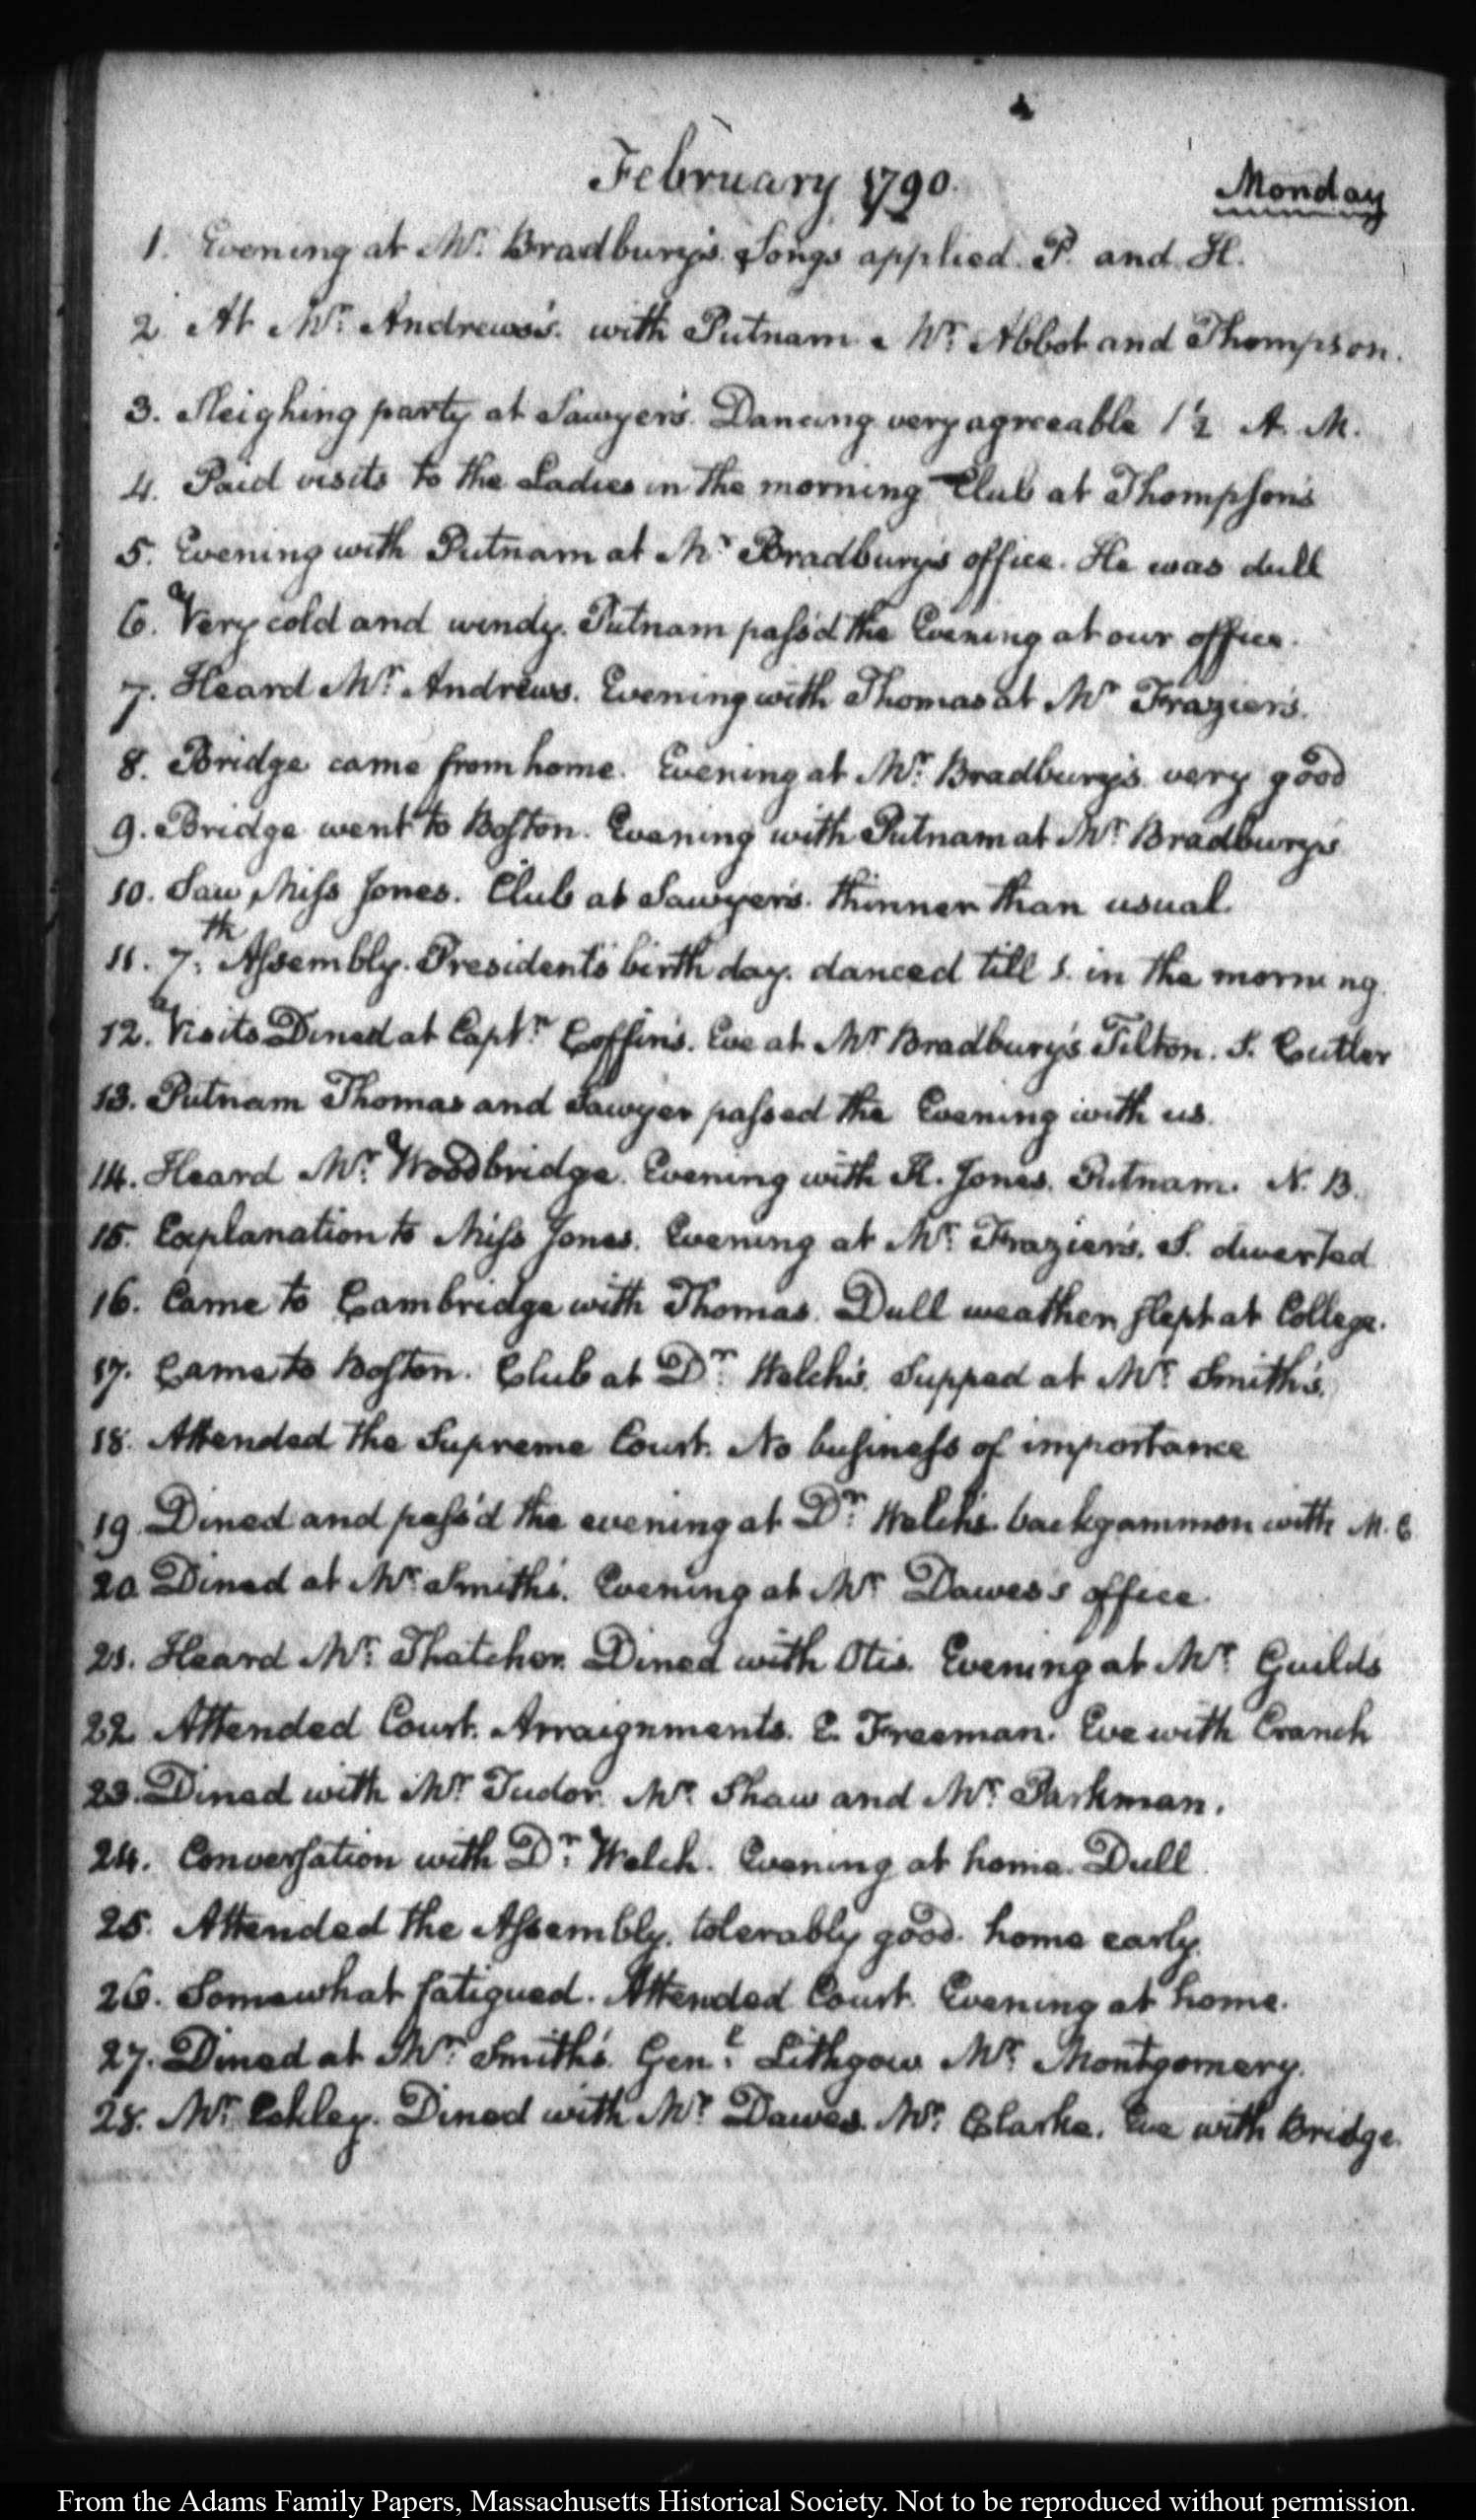 February 1790.
Monday
1. Evening at Mr. Bradbury's. Songs applied. P. and H.
2 At Mr. Andrews's. with Putnam. Mr. Abbot and Thompson.
3. Sleighing party at Sawyer's. Dancing very agreeable 1 1/2 A. M.
4. Paid visits to the Ladies in the morning Club at Thompson's
5. Evening with Putnam at Mr Bradbury's office. He was dull
6. Very cold and windy. Putnam pass'd the Evening at our office.
7. Heard Mr. Andrews. Evening with Thomas at Mr Frazier's.
8. Bridge came from home. Evening at Mr. Bradbury's. very good
9. Bridge went to Boston. Evening with Putnam at Mr. Bradbury's
10. Saw Miss Jones. Club at Sawyer's. thinner than usual.
11. 7.th Assembly. President's birth day. danced till 1. in the morning.
12. Visits Dined at Capt.n Coffin's. Eve at Mr Bradbury's Tilton. S. Cutler
13. Putnam Thomas and Sawyer passed the Evening with us.
14. Heard Mr. Woodbridge. Evening with H. Jones. Putnam. N. B.
15. Explanation to Miss Jones. Evening at Mr. Frazier's. S. diverted
16. Came to Cambridge with Thomas. Dull weather, slept at College.
17. Came to Boston. Club at Dr. Welch's. Supped at Mr. Smith's.
18. Attended the Supreme Court. No business of importance
19 Dined and pass'd the evening at Dr. Welch's backgammon with M. C
20 Dined at Mr. Smith's. Evening at Mr Dawes's office.
21. Heard Mr. Thatcher. Dined with Otis. Evening at Mr. Guild's
22 Attended Court. Arraignments. E. Freeman. Eve with Cranch
23. Dined with Mr. Tudor. Mr. Shaw and Mr. Parkman.
24. Conversation with Dr. Welch. Evening at home. Dull.
25. Attended the Assembly. tolerably good. home early.
26. Somewhat fatigued. Attended Court. Evening at home.
27. Dined at Mr. Smith's. Gen.l Lithgow Mr. Montgomery.
28. Mr. Eckley. Dined with Mr. Dawes. Mr. Clarke. Eve with Bridge.
From the Adams Family Papers, Massachusetts Historical Society. Not to be reproduced without permission.